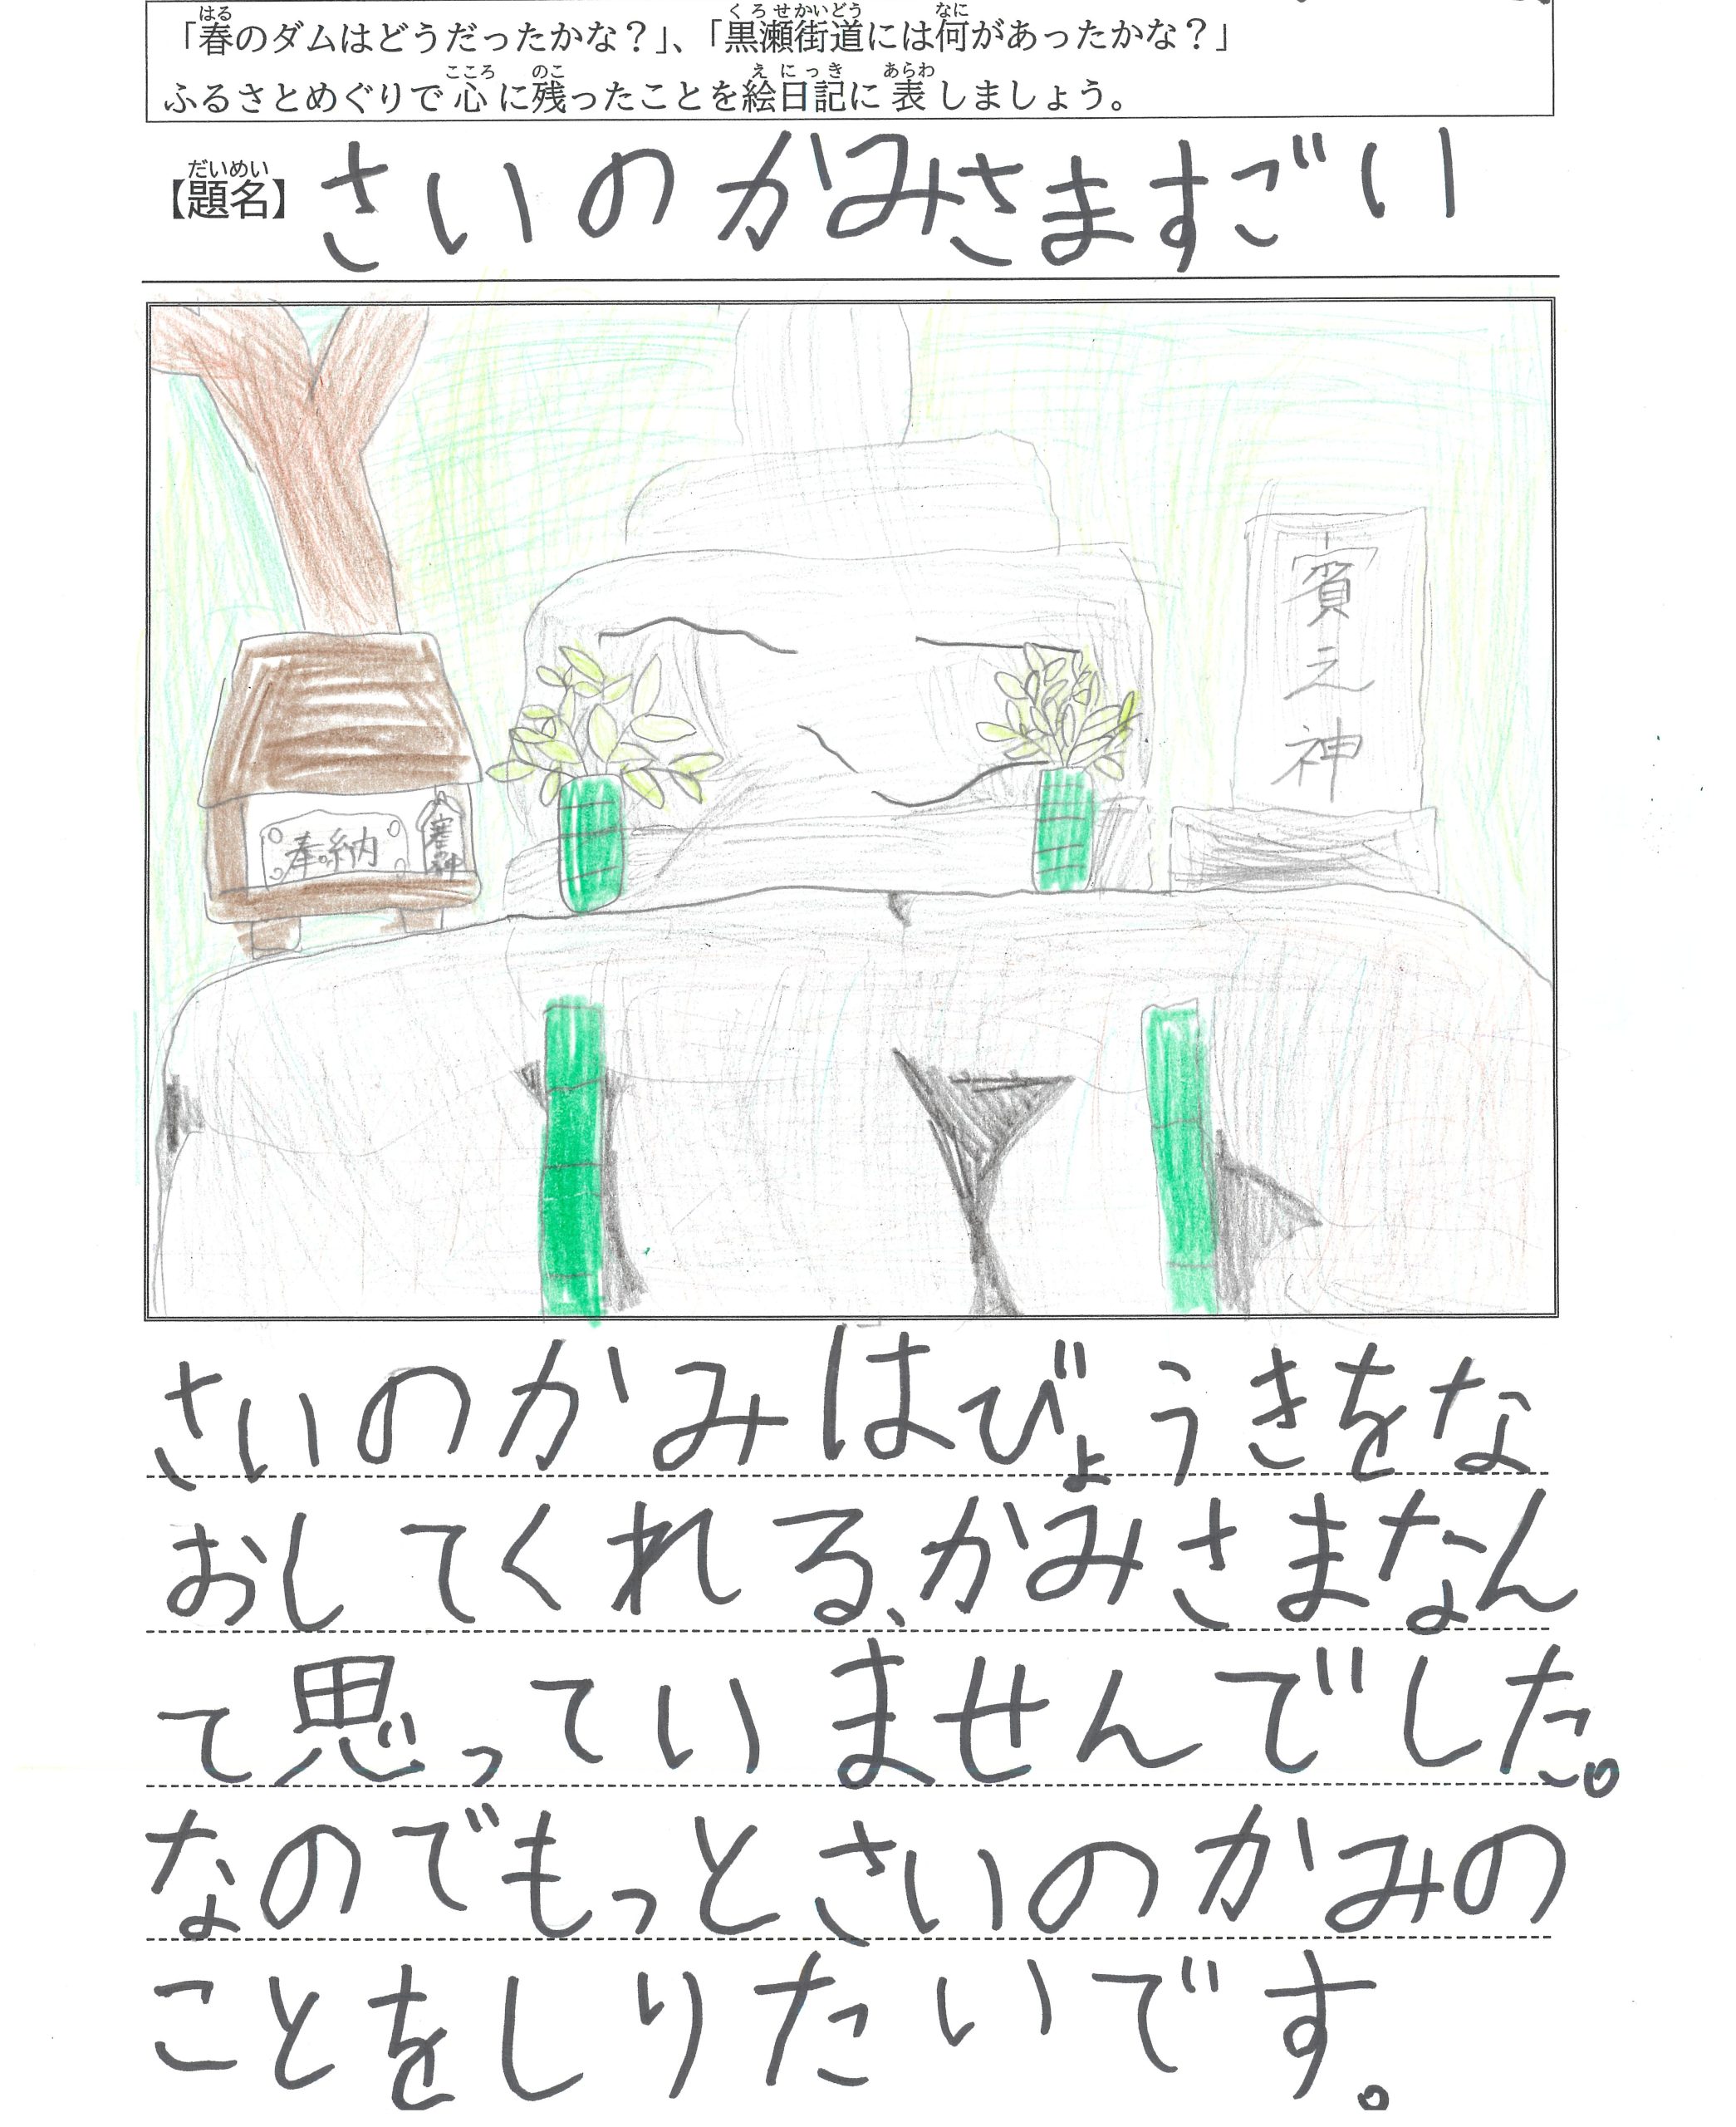 「春のダムはどうだったかな？」、「黒瀬街道には何があったかな？」
ふるさとめぐりで心に残ったことを絵日記に表しましょう。
【題名】さいのかみさますごい
賓之神
奉納
塞神
さいのかみはびょうきをな
おしてくれる、かみさまなん
て思っていませんでした。
なのでもっとさいのかみの
ことをしりたいです。